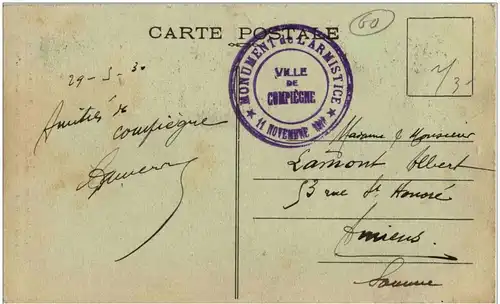 CARTE POSTALE
60
MONUMENT de L'ARMISTICE
VILLE
DE
COMPIÈGNE
★ 11 NOVEMBRE 1918 ★
29-5-30
Amitiés de
Compiègne
Madame & Monsieur
Lamont Albert
53 rue St Honoré
Amiens.
Somme